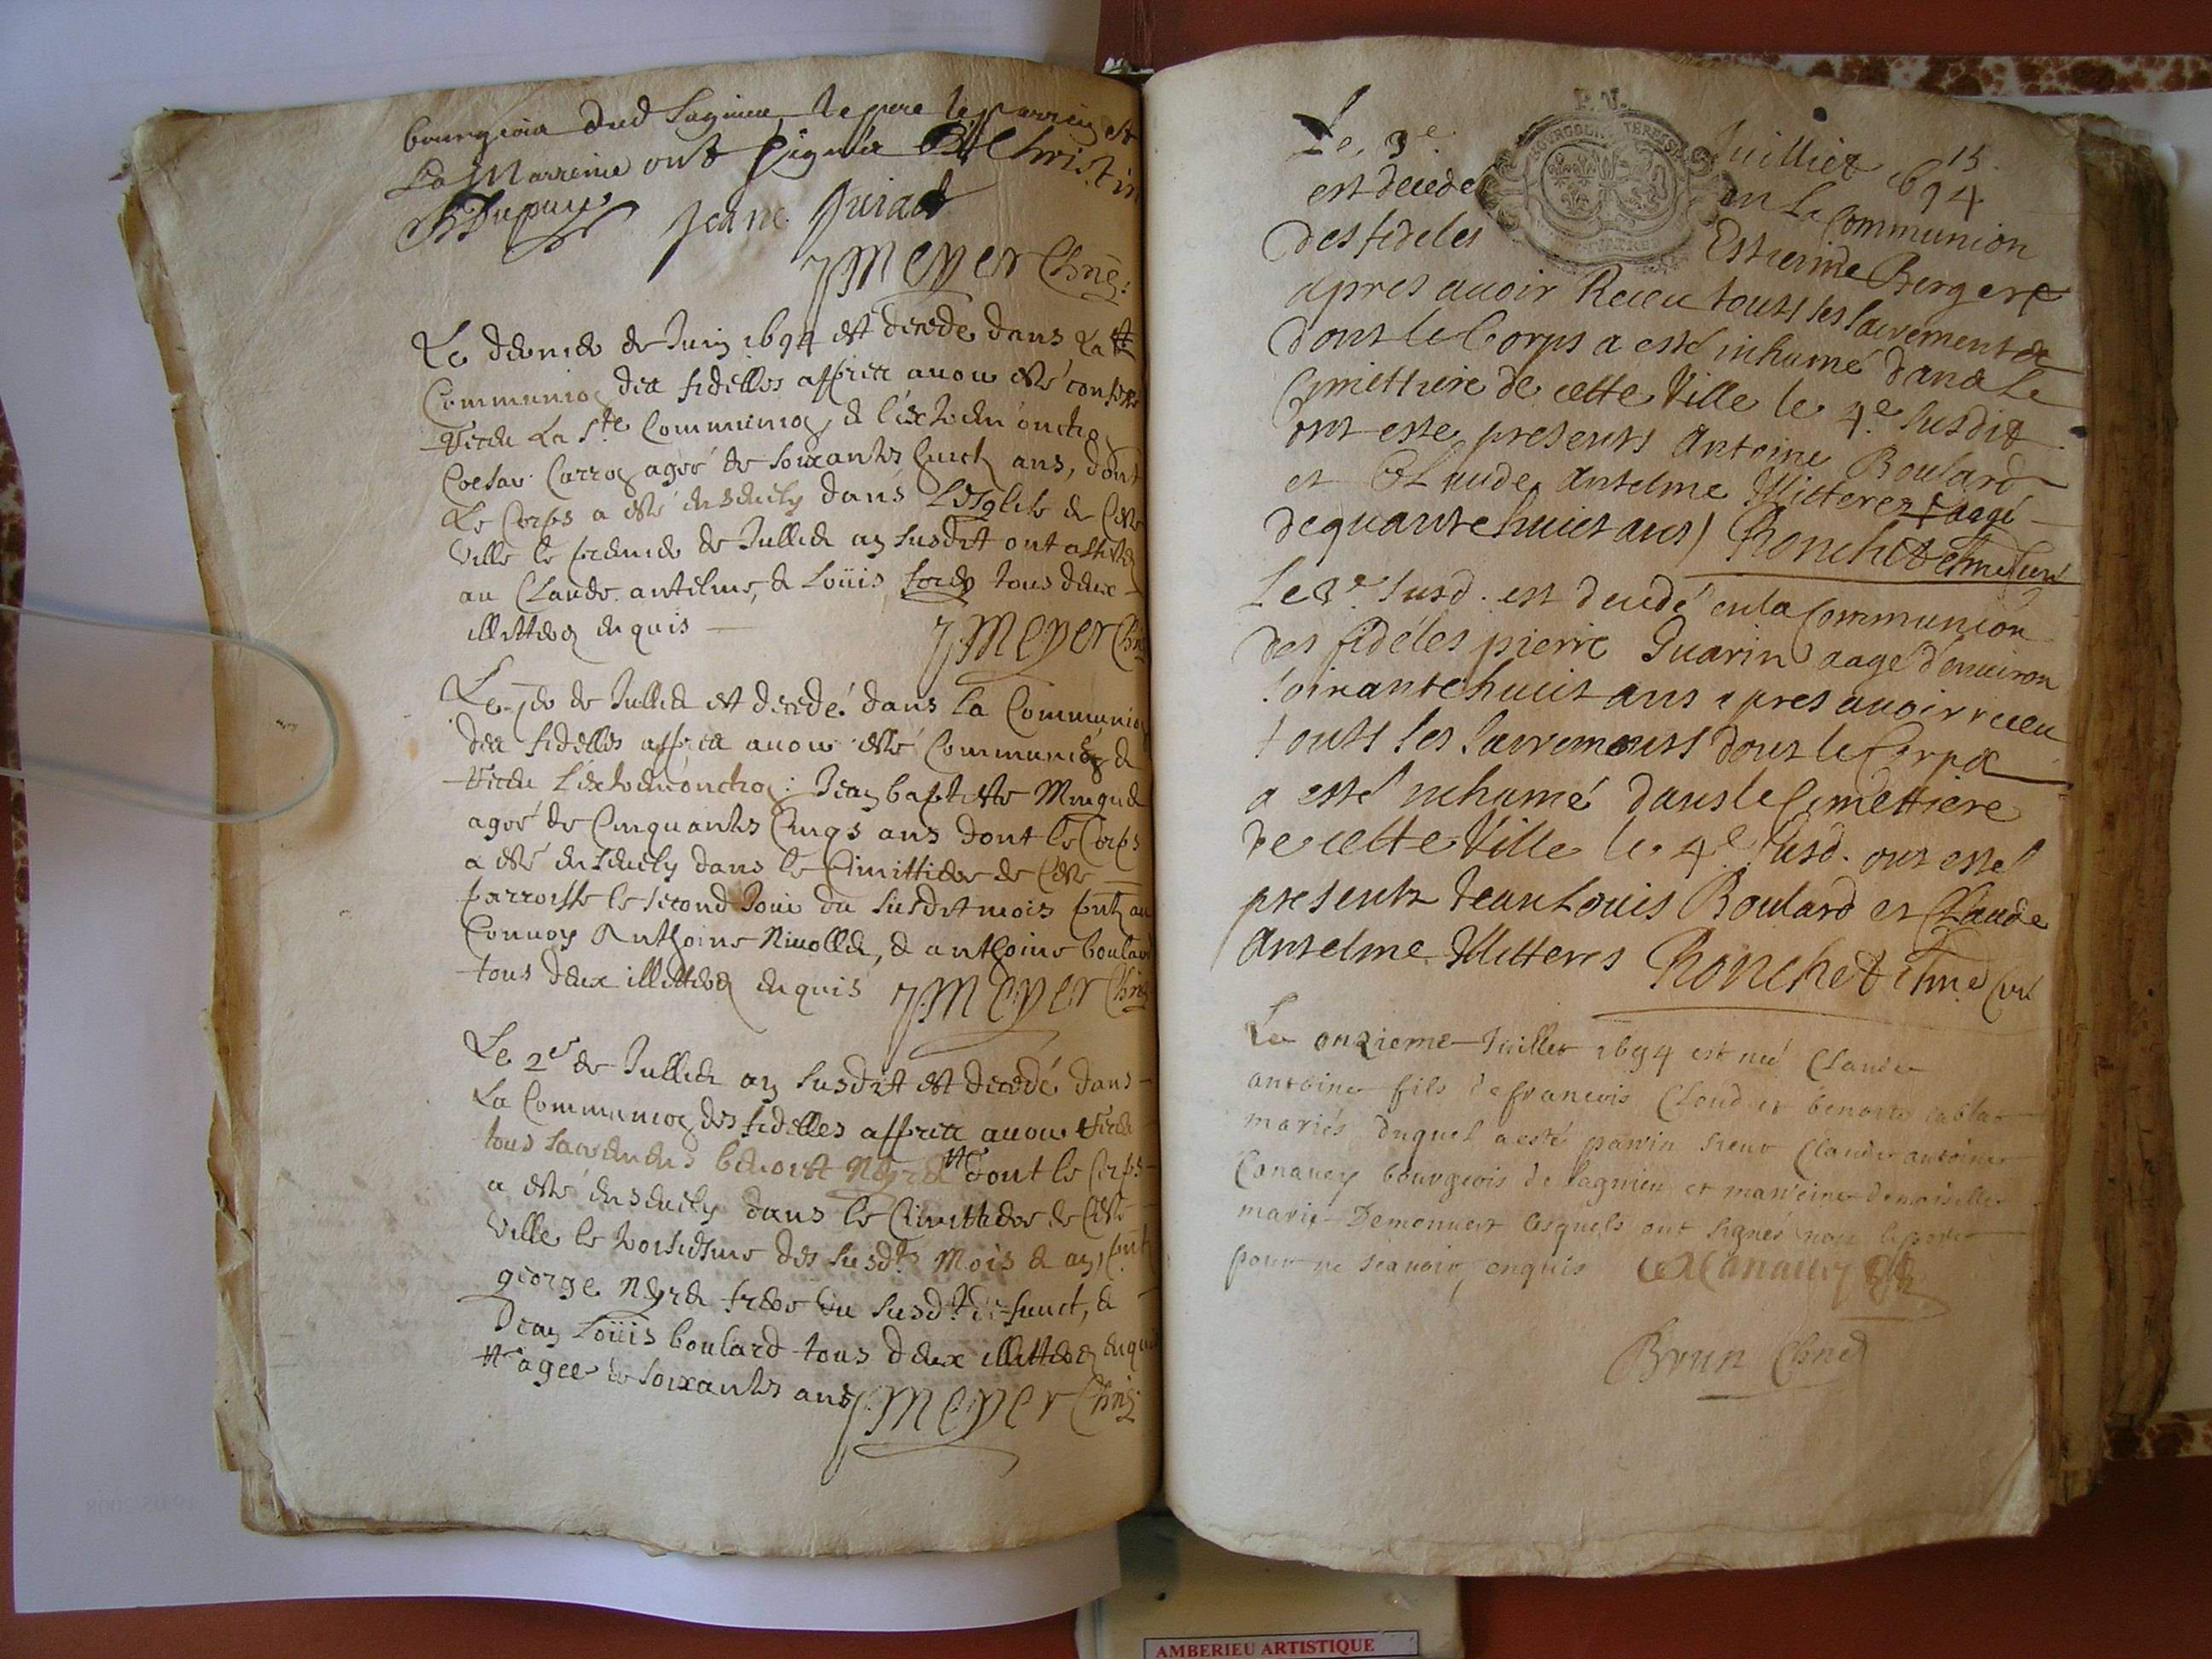 bourgeois dud Lagnieu le pere le parrin et
La Marreine ont signés Christin
Dupuis Jeane Juirad
J Meyer Chne:
Le dernier de Juin 1694 est decede dans La Ste
Communion des fidelles apprez auoir esté confessé
receu La Ste Communion, & l'extreme onction
Coesar Carron ageé de soixante huict ans, dont
Le Corps a esté enseuely dans L'Esglise de Ceste
Ville le premier de Jullet an susdit ont assistés
au Claude antelme, & Loüis tous deux
illitteres enquis J Meyer Chne
Le 1er de Jullet est decedé dans la Communion
des fidelles apprez auoir esté Communié &
receu l'extremonction: Jean baptiste Muguet
ageé de Cinquante Cinqs ans dont le Corps
a esté enseuely dans le Cimittiere de Ceste
parroisse le second Jour du susdit mois furent au
Conuoy Anthoine Niuollet, & anthoine boulard
tous deux illitteres enquis J Meyer Chne
Le 2e de Jullet an susdit est decedé dans
La Communion des fidelles apprez auoir receu
tous sacremens benoist Neyret dont le Corps
a esté enseuely dans le Cimittiere de Ceste
Ville le troisiesme des susdts Mois & an, furent
george Neyret frere du susdt defunct, &
Jean Loüis boulard tous deux illitteres enquis
agee de soixante ans J Meyer Chne
Le 3e Juilliet 1694 15
est decede en La Communion
des fideles Estienne Berger
apres auoir Receu touts les sacrements
dont le Corps a esté inhumé dans Le
Cimettiere de cette Ville le 4e susdit
ont este presents Antoine Boulard
et Claude Antelme Illiteres aagé
de quarante huict ans Ronchet chne Curé
Le 3e susd. est decedé en la Communion
des fidéles pierre Guarin aagé d'enuiron
soixante huict ans apres auoir receu
touts les sacrements dont le Corps
a esté inhumé dans le Cimettiere
de cette Ville le 4e susd. ont esté
presents Jean Louis Boulard et Claude
Antelme Illitteres Ronchet chne Curé
Le onzieme Juillet 1694 est neé Claude
antoine fils de francois Cloud et benoite
mariés duquel a esté parrin sieur Claude antoine
Canauey bourgeois de lagnieu et marreine demoiselle
marie Demonuert lesquels ont signés non le pere
pour ne scauoir, enquis Canauey
Brun Chne
AMBERIEU ARTISTIQUE